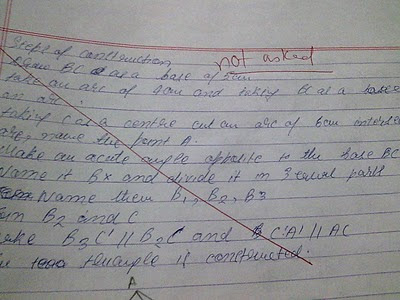 Steps of construction
not asked
BC as a base of 5cm
take an arc of 4cm and taking B as a base
an arc.
taking C as a centre cut an arc of 6cm
arc, name the point A.
Make an acute angle opposite to the base BC
Name it Bx and divide it in 3 equal part
Name them B1, B2, B3
B2 and C
B3C' // B2C and C'A' // AC
triangle is constructed.
A